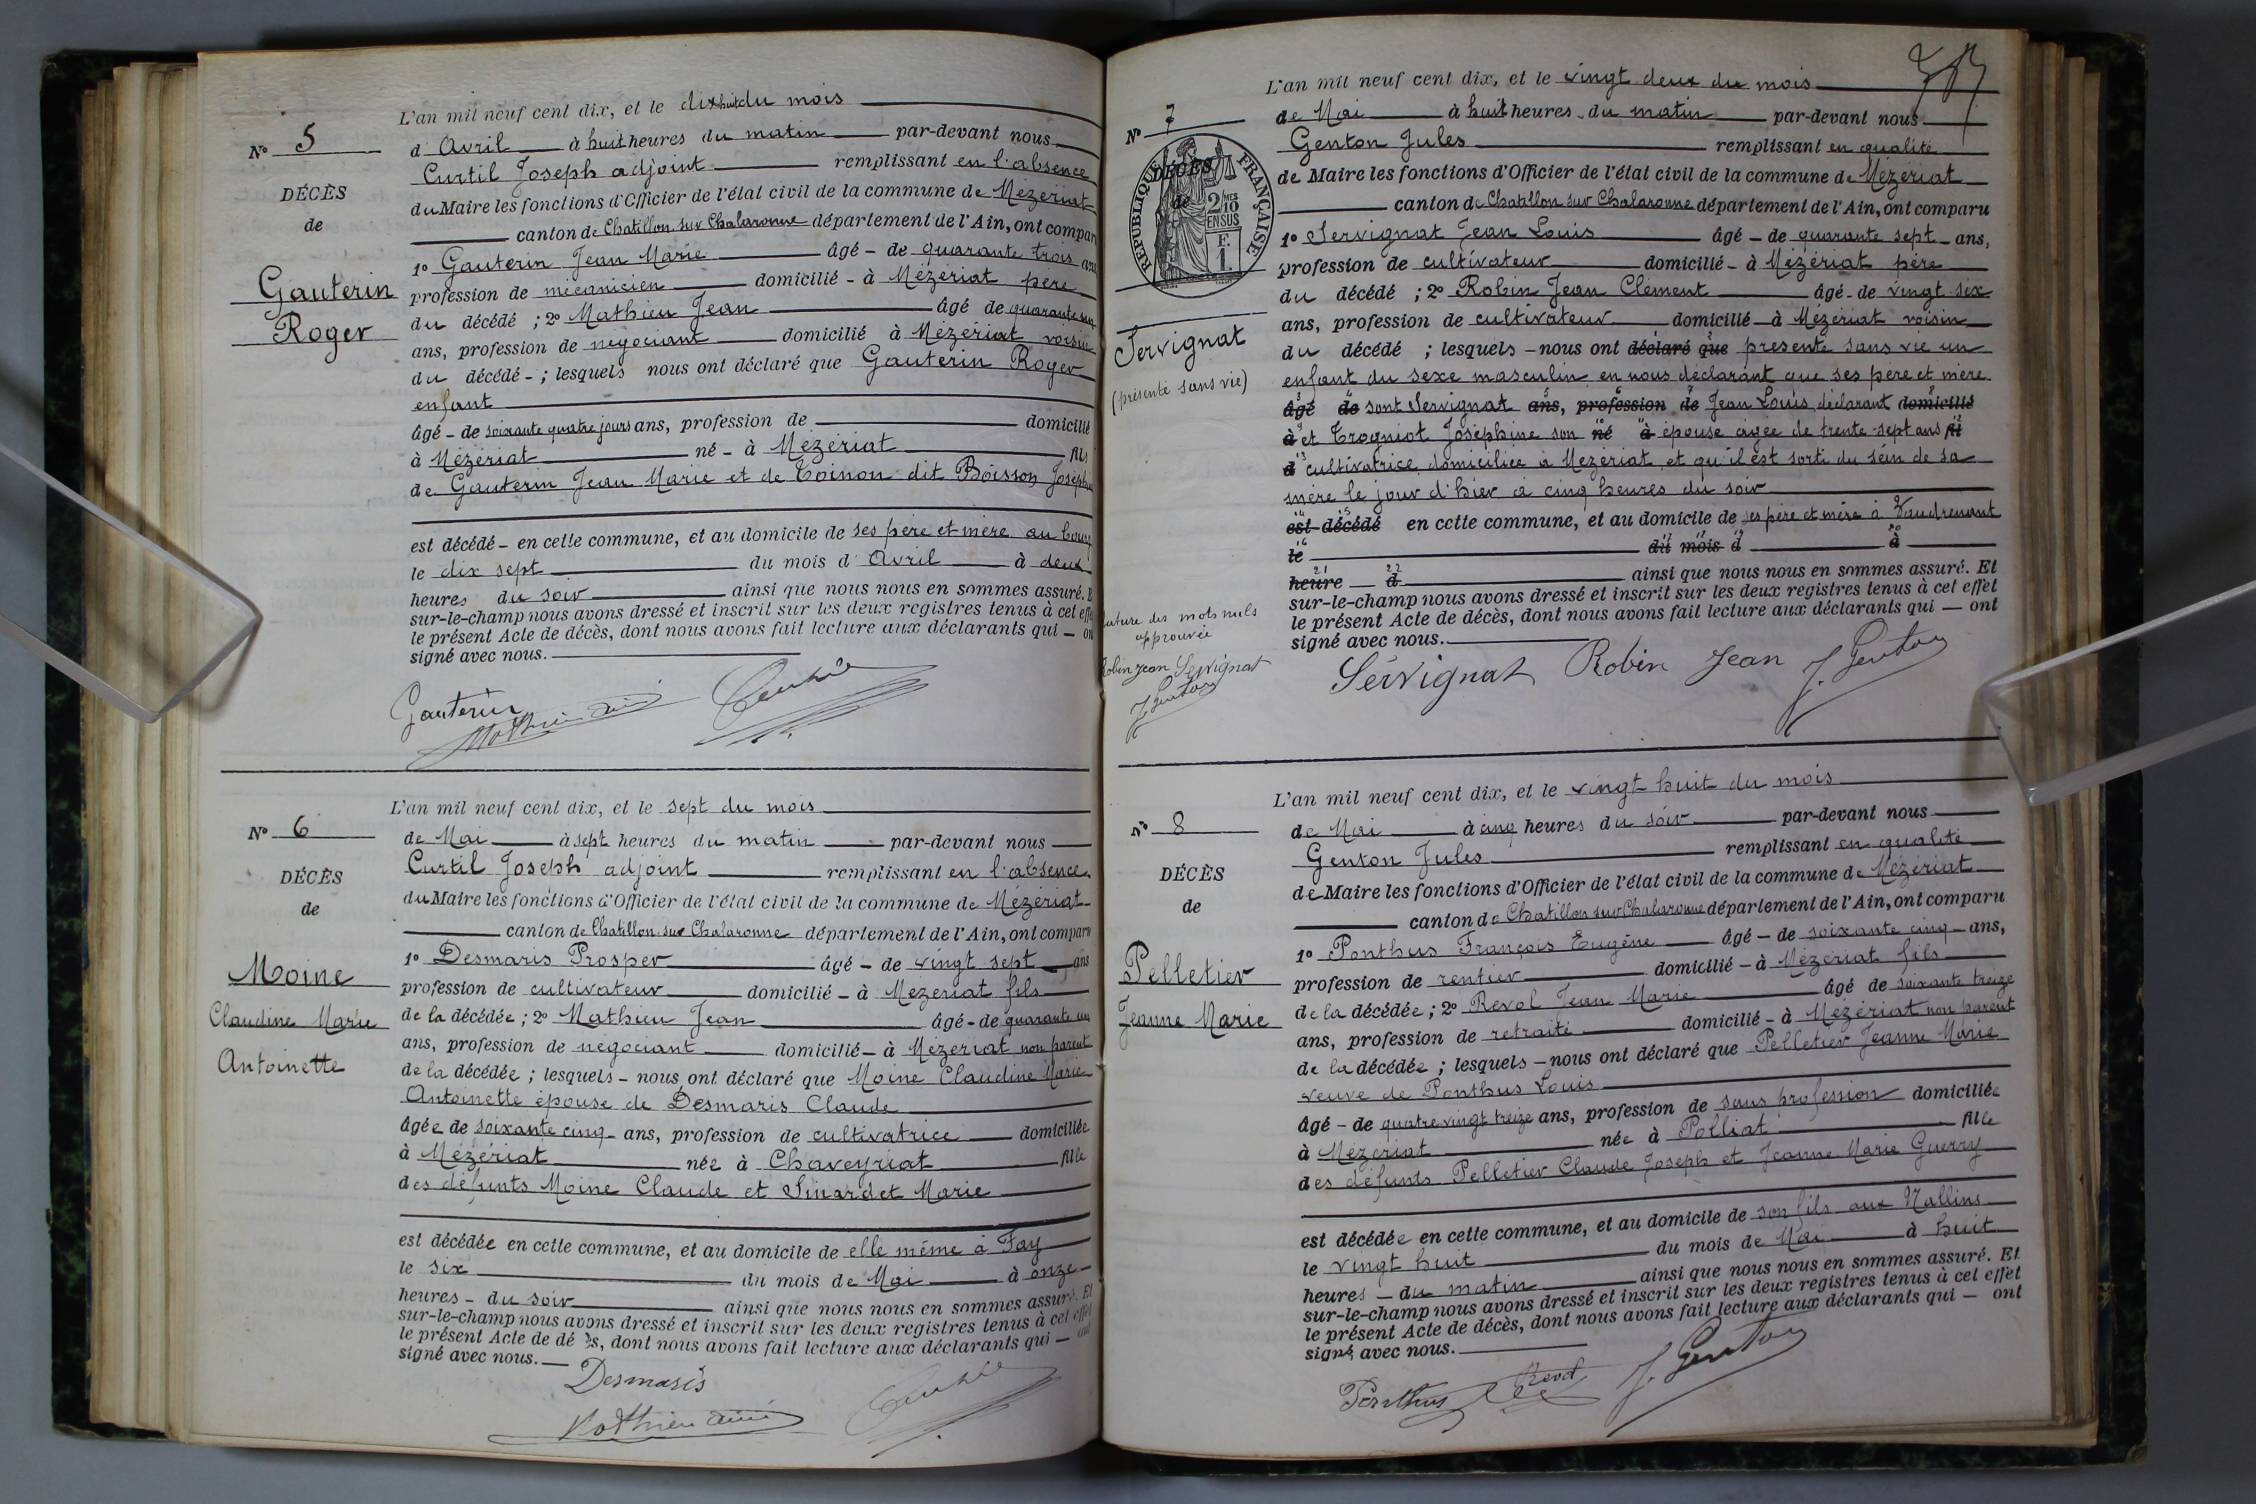 N° 5
DÉCÈS
de
Gauterin
Roger
L'an mil neuf cent dix, et le dix huit du mois
d'Avril à huit heures du matin par-devant nous
Curtil Joseph adjoint remplissant en l'absence
du Maire les fonctions d'Officier de l'état civil de la commune de Mézériat
canton de Chatillon sur Chalaronne département de l'Ain, ont compar
1° Gauterin Jean Marie âgé - de quarante trois ans
profession de mécanicien domicilié - à Mézériat père
du décédé ; 2° Mathieu Jean âgé de quarante un
ans, profession de négociant domicilié à Mézériat voisin
du décédé - ; lesquels nous ont déclaré que Gauterin Roger
enfant
âgé - de soixante quatre jours ans, profession de domicilié
à Mézériat né - à Mézériat fils
de Gauterin Jean Marie et de Toinon dit Boisson Joséphi
est décédé - en cette commune, et au domicile de ses père et mère au bourg
le dix sept du mois d'Avril à deux
heures du soir ainsi que nous nous en sommes assuré. E
sur-le-champ nous avons dressé et inscrit sur les deux registres tenus à cet effe
le présent Acte de décès, dont nous avons fait lecture aux déclarants qui - on
signé avec nous.
Gauterin Mathieu Curtil
N° 6
DÉCÈS
de
Moine
Claudine Marie
Antoinette
L'an mil neuf cent dix, et le sept du mois
de Mai à sept heures du matin par-devant nous
Curtil Joseph adjoint remplissant en l'absence
du Maire les fonctions d'Officier de l'état civil de la commune de Mézériat
canton de Chatillon sur Chalaronne département de l'Ain, ont comparu
1° Desmaris Prosper âgé - de vingt sept ans
profession de cultivateur domicilié - à Mézériat fils
de la décédée ; 2° Mathieu Jean âgé - de quarante un
ans, profession de négociant domicilié - à Mézériat non parent
de la décédée ; lesquels - nous ont déclaré que Moine Claudine Marie
Antoinette épouse de Desmaris Claude
âgée de soixante cinq - ans, profession de cultivatrice domiciliée
à Mézériat née à Chaveyriat fille
des défunts Moine Claude et Sinardet Marie
est décédée en cette commune, et au domicile de elle même à Fay
le six du mois de Mai à onze
heures - du soir ainsi que nous nous en sommes assuré. Et
sur-le-champ nous avons dressé et inscrit sur les deux registres tenus à cet effet
le présent Acte de décès, dont nous avons fait lecture aux déclarants qui - ont
signé avec nous.
Desmaris
Mathieu Curtil
N° 7
DÉCÈS
de
RÉPUBLIQUE FRANÇAISE
2/10 MES
EN SUS
F.
1.
Servignat
(présenté sans vie)
L'an mil neuf cent dix, et le vingt deux du mois
de Mai à huit heures du matin par-devant nous
Genton Jules remplissant en qualité
de Maire les fonctions d'Officier de l'état civil de la commune de Mézériat
canton de Chatillon sur Chalaronne département de l'Ain, ont comparu
1° Servignat Jean Louis âgé - de quarante sept - ans,
profession de cultivateur domicilié - à Mézériat père
du décédé ; 2° Robin Jean Clément âgé - de vingt six
ans, profession de cultivateur domicilié - à Mézériat voisin
du décédé ; lesquels - nous ont déclaré que présenté sans vie un
enfant du sexe masculin en nous déclarant que ses père et mère
âgé de sont Servignat ans, profession de Jean Louis, déclarant domicilié
à et Trogniot Joséphine son né à épouse âgée de trente-sept ans fil
d cultivatrice domiciliée à Mézériat et qu'il est sorti du sein de sa
mère le jour d'hier à cinq heures du soir
est décédé en cette commune, et au domicile de ses père et mère à Vaudrenant
le du mois d à
heure d ainsi que nous nous en sommes assuré. Et
sur-le-champ nous avons dressé et inscrit sur les deux registres tenus à cet effet
le présent Acte de décès, dont nous avons fait lecture aux déclarants qui - ont
signé avec nous.
Servignat Robin Jean J. Genton
des mots nuls
approuvée
Robin Jean Servignat
J. Genton
N° 8
DÉCÈS
de
Pelletier
Jeanne Marie
L'an mil neuf cent dix, et le vingt huit du mois
de Mai à cinq heures du soir par-devant nous
Genton Jules remplissant en qualité
de Maire les fonctions d'Officier de l'état civil de la commune de Mézériat
canton de Chatillon sur Chalaronne département de l'Ain, ont comparu
1° Ponthus François Eugène âgé - de soixante cinq - ans,
profession de rentier domicilié - à Mézériat fils
de la décédée ; 2° Revol Jean Marie âgé de soixante treize
ans, profession de retraité domicilié - à Mézériat non parent
de la décédée ; lesquels - nous ont déclaré que Pelletier Jeanne Marie
veuve de Ponthus Louis
âgé - de quatre vingt treize ans, profession de sans profession domiciliée
à Mézériat née à Polliat fille
des défunts Pelletier Claude Joseph et Jeanne Marie Guerry
est décédée en cette commune, et au domicile de son fils aux Nallins
le vingt huit du mois de Mai à huit
heures - du matin ainsi que nous nous en sommes assuré. Et
sur-le-champ nous avons dressé et inscrit sur les deux registres tenus à cet effet
le présent Acte de décès, dont nous avons fait lecture aux déclarants qui - ont
signé avec nous.
Ponthus Revol J. Genton